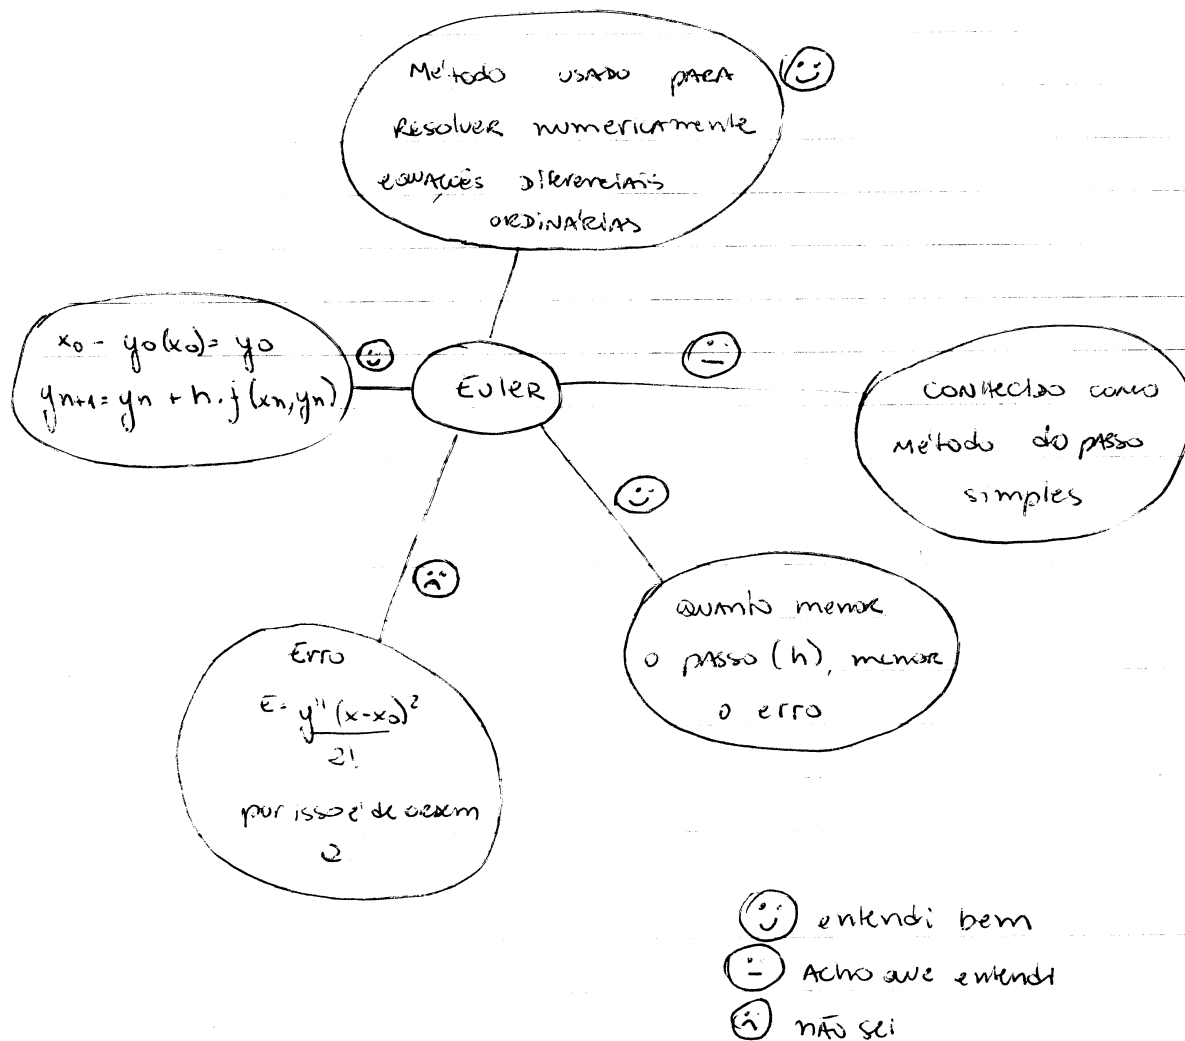 Método usado para
resolver numericamente
equações diferenciais
ordinárias
x0 - y0(x0) = y0
yn+1 = yn + h . f(xn, yn)
Euler
conhecido como
método do passo
simples
quanto menor
o passo (h), menor
o erro
Erro
E = y''(x-x0)²
2!
por isso é de ordem
2
entendi bem
Acho que entendi
não sei